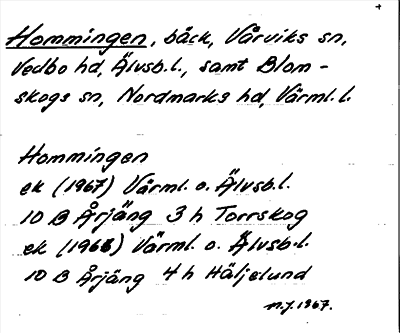 Hommingen, bäck, Vårviks sn,
Vedbo hd, Älvsb.l., samt Blom-
skogs sn, Nordmarks hd, Värml.l.
Hommingen
ek (1967) Värml. o. Älvsb.l.
10 B Årjäng 3 h Torrskog
ek (1968) Värml. o. Älvsb.l.
10 B Årjäng 4 h Häljelund
n.j. 1967.